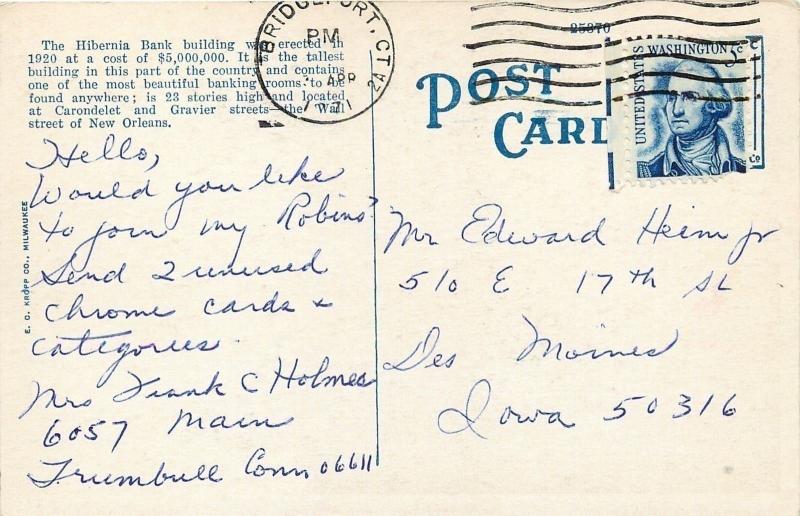 The Hibernia Bank building was erected in
1920 at a cost of $5,000,000. It is the tallest
building in this part of the country and contains
one of the most beautiful banking rooms to be
found anywhere; is 23 stories high and located
at Carondelet and Gravier streets—the Wall
street of New Orleans.
BRIDGEPORT, CT
PM
APR
1971
2A
25870
POST
CARD
UNITED STATES
WASHINGTON
5c
Co
E. C. KROPP CO., MILWAUKEE
Hello,
Would you like
to join my Robins?
Send 2 unused
chrome cards &
categories.
Mrs Frank C Holmes
6057 Main
Trumbull Conn 06611
Mr Edward Heim Jr
510 E 17th St
Des Moines
Iowa 50316